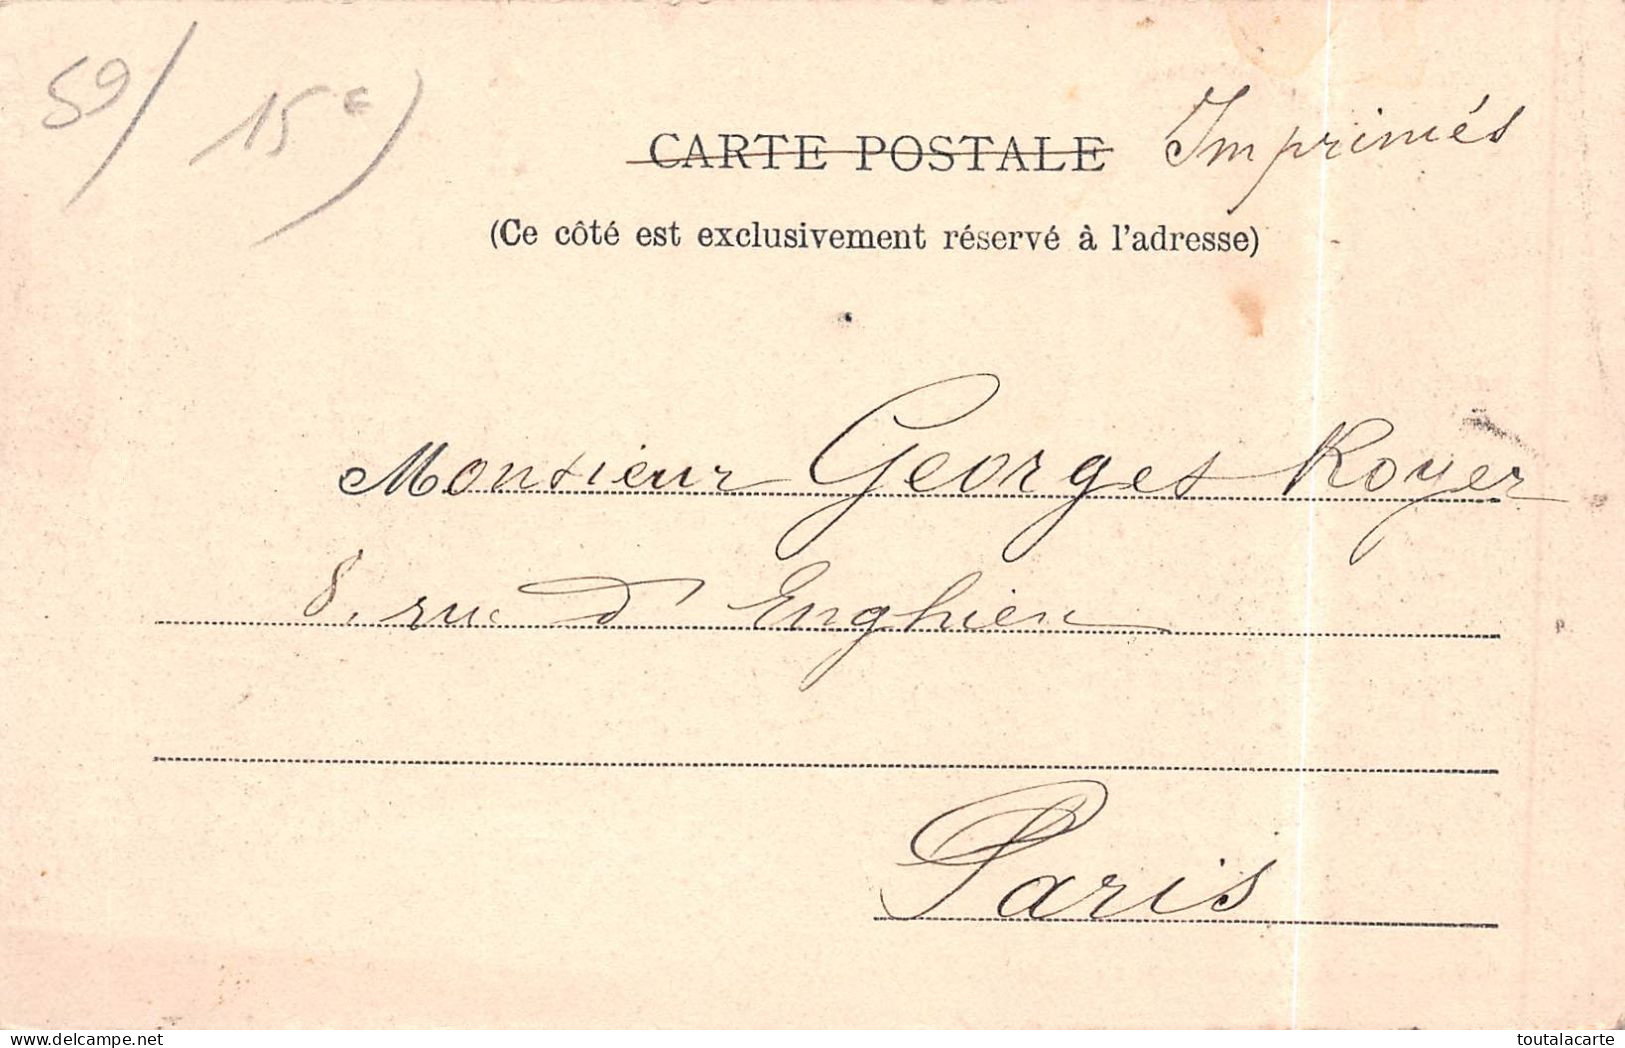 59/
15 c)
CARTE POSTALE Imprimés
(Ce côté est exclusivement réservé à l'adresse)
Monsieur Georges Royer
8, rue d'Enghien
P.
Paris
delcampe.net
toutalacarte